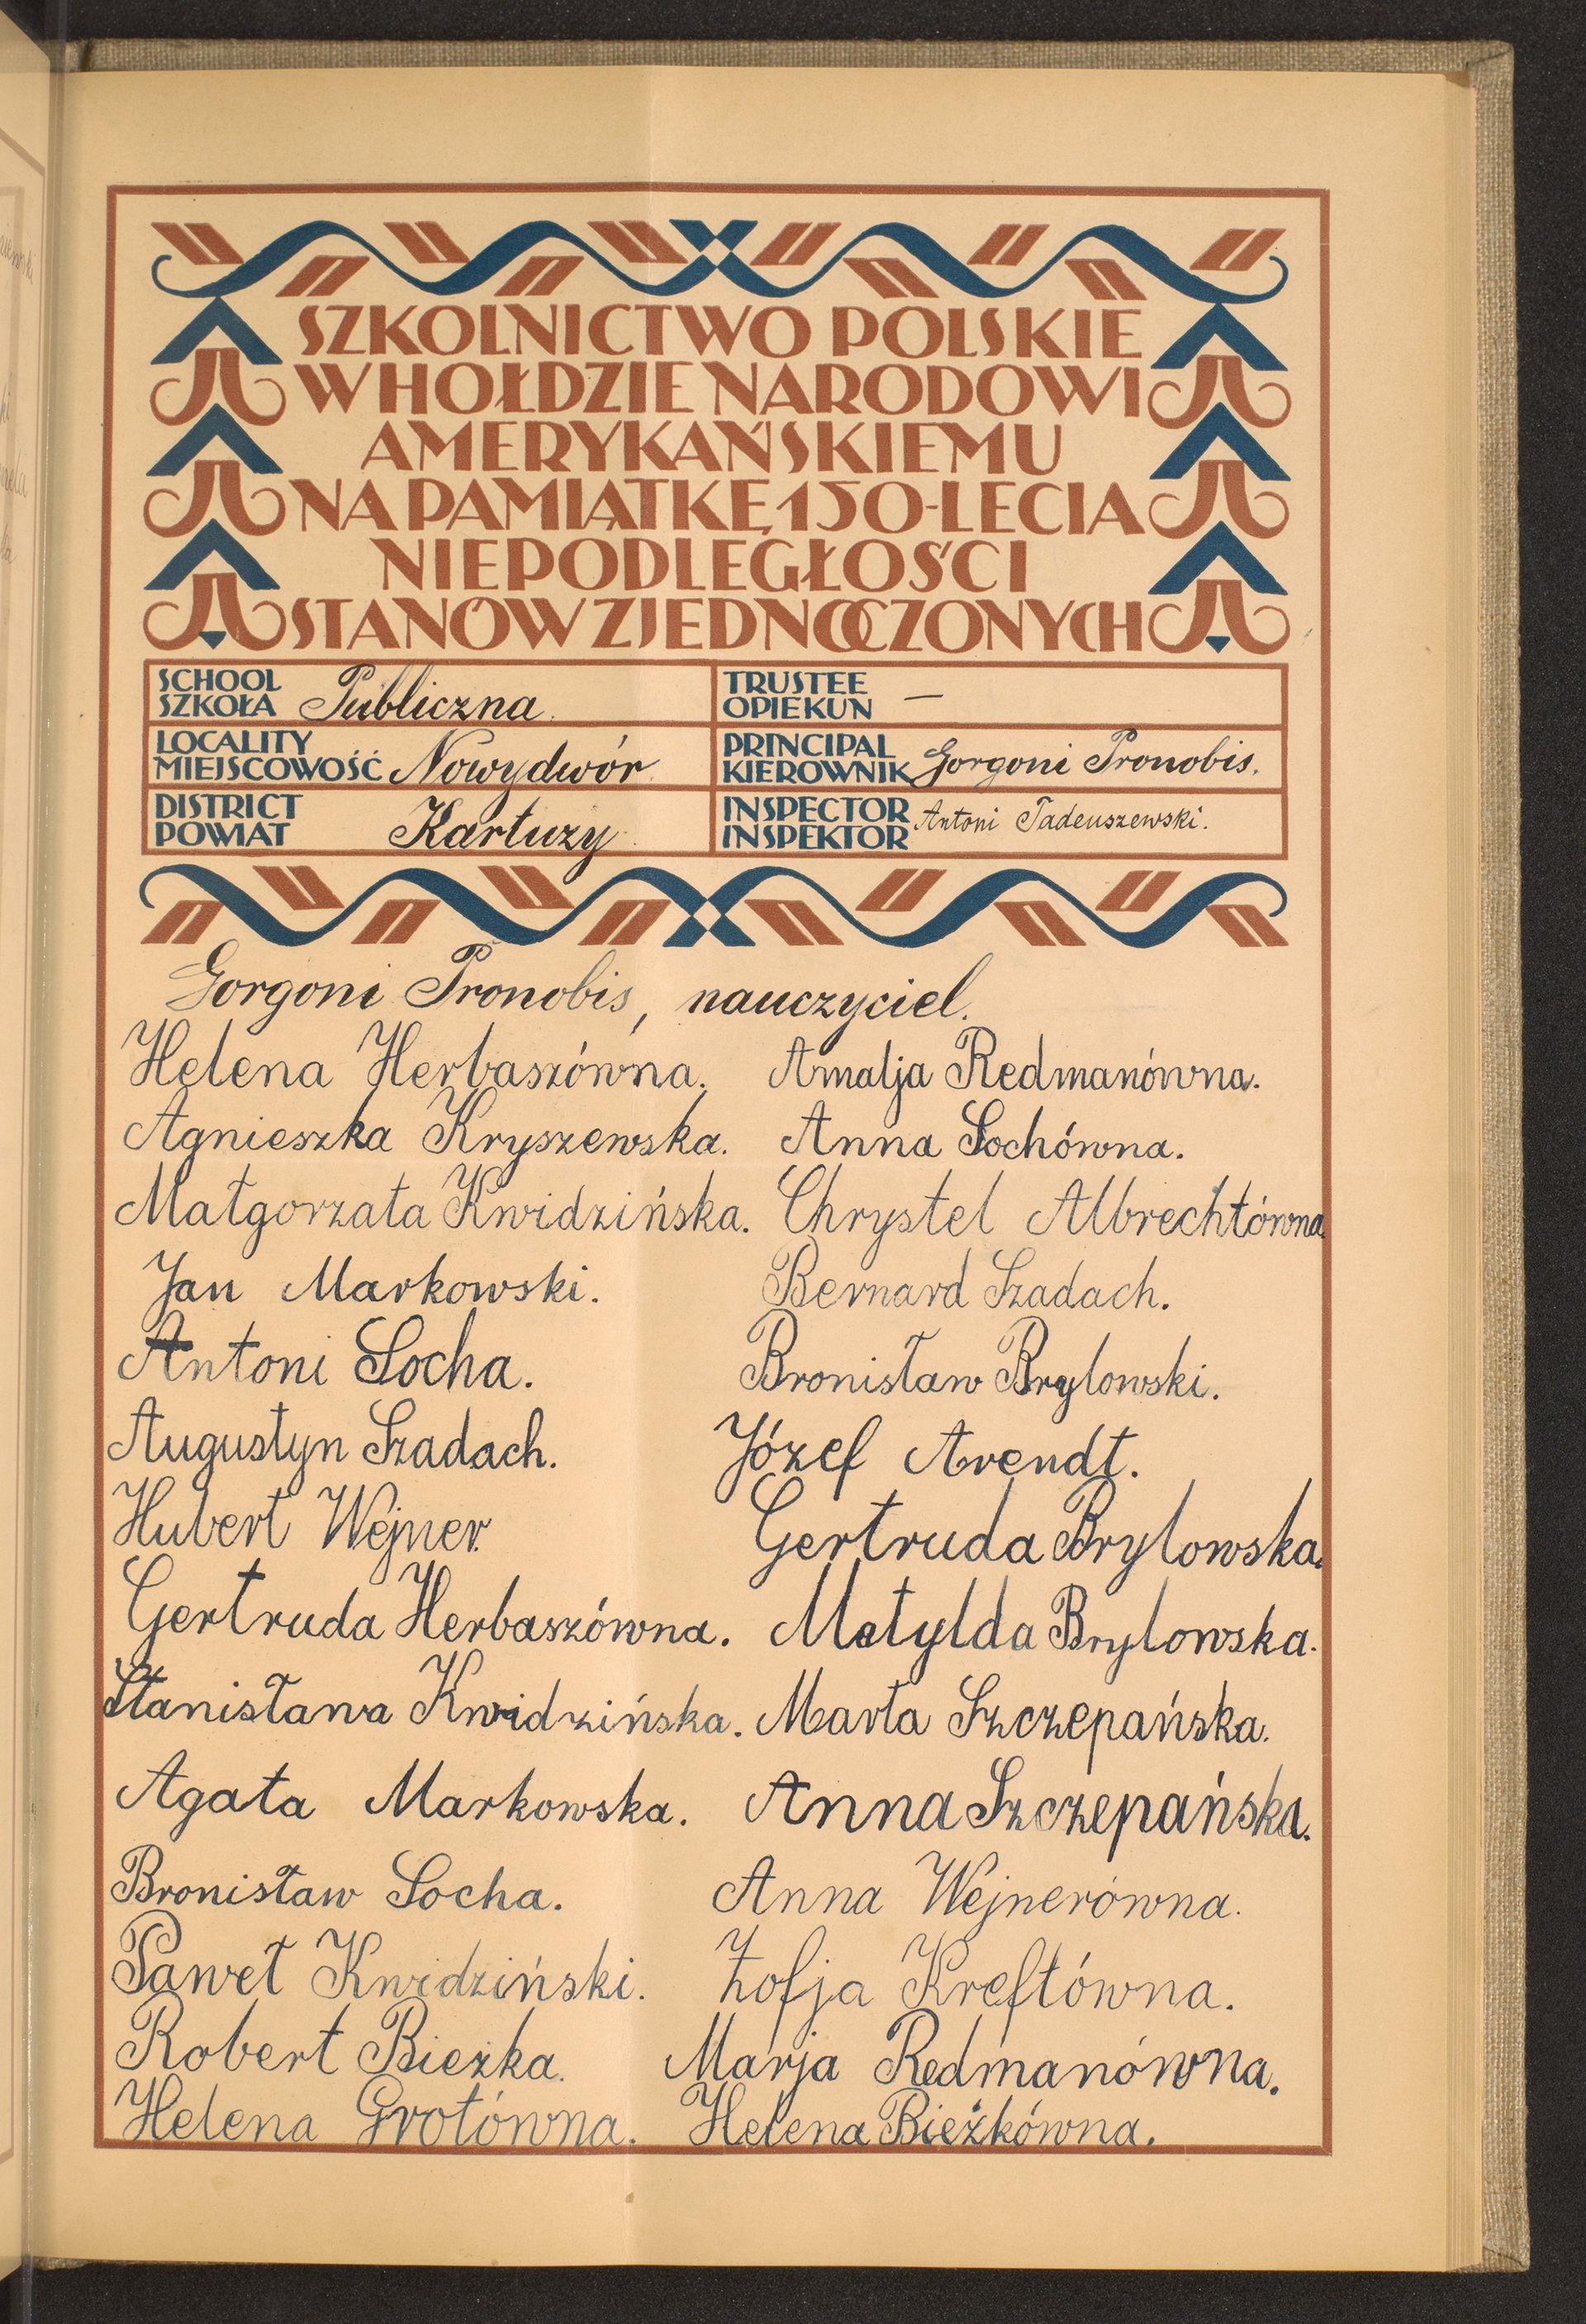 SZKOLNICTWO POLSKIE
W HOŁDZIE NARODOWI
AMERYKAŃSKIEMU
NA PAMIĄTKĘ 150-LECIA
NIEPODLEGŁOŚCI
STANÓW ZJEDNOCZONYCH
SCHOOL
SZKOŁA Publiczna.
TRUSTEE
OPIEKUN —
LOCALITY
MIEJSCOWOŚĆ Nowydwór
PRINCIPAL
KIEROWNIK Gorgoni Pronobis.
DISTRICT
POWIAT Kartuzy
INSPECTOR
INSPEKTOR Antoni Tadeuszewski.
Gorgoni Pronobis, nauczyciel.
Helena Herbaszówna. Amalja Redmanówna.
Agnieszka Kryszewska. Anna Sochówna.
Małgorzata Kwidzińska. Chrystel Albrechtówna
Jan Markowski. Bernard Szadach.
Antoni Socha. Bronisław Brylowski.
Augustyn Szadach. Józef Arendt.
Hubert Wejner. Gertruda Brylowska.
Gertruda Herbaszówna. Matylda Brylowska.
Stanisława Kwidzińska. Marta Szczepańska.
Agata Markowska. Anna Szczepańska.
Bronisław Socha. Anna Wejnerówna.
Paweł Kwidziński. Zofja Kreftówna.
Robert Bieżka. Marja Redmanówna.
Helena Grotówna. Helena Bieżkówna.